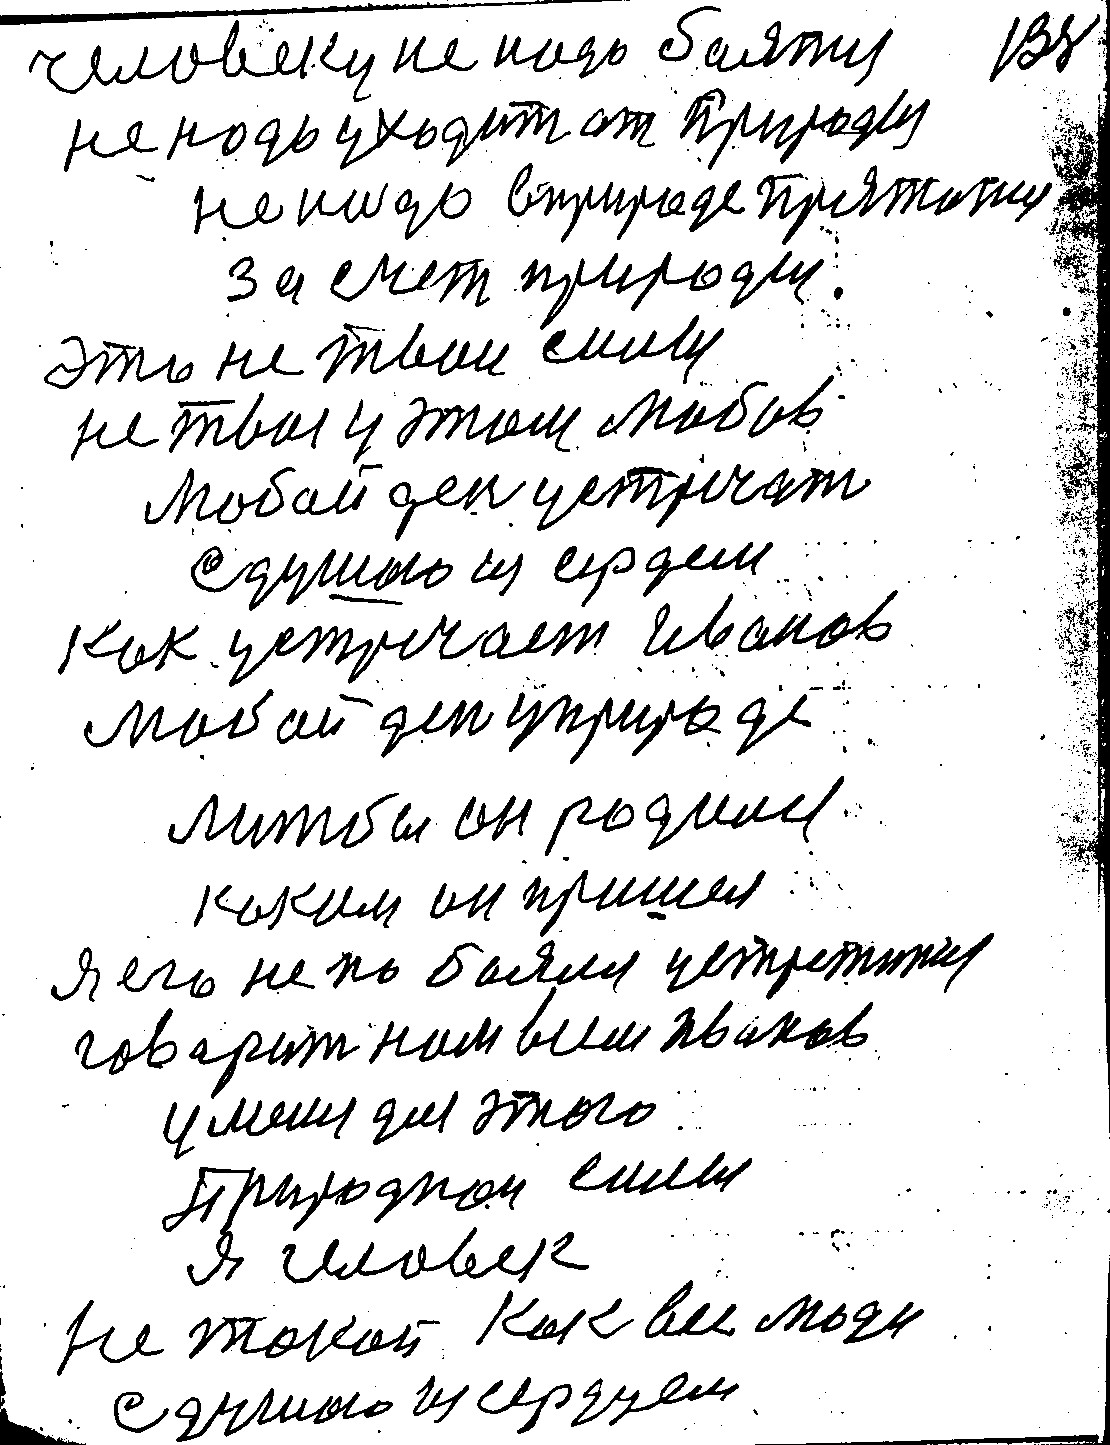 человеку не надо баятця 138
не надо уходит от природы
не надо в природе прятатця
за счет природы.
это не твои силы
не твоя у этом любов
любой ден устречат
с душою и сердем
как устречает Иванов
любой ден у природе
лиж бы он родился
каким он пришел
я его не по баялся устретитця
говарит нам всем Иванов
у меня для этого
природной силы
я человек
не такой как все люди
с душою и сердцем